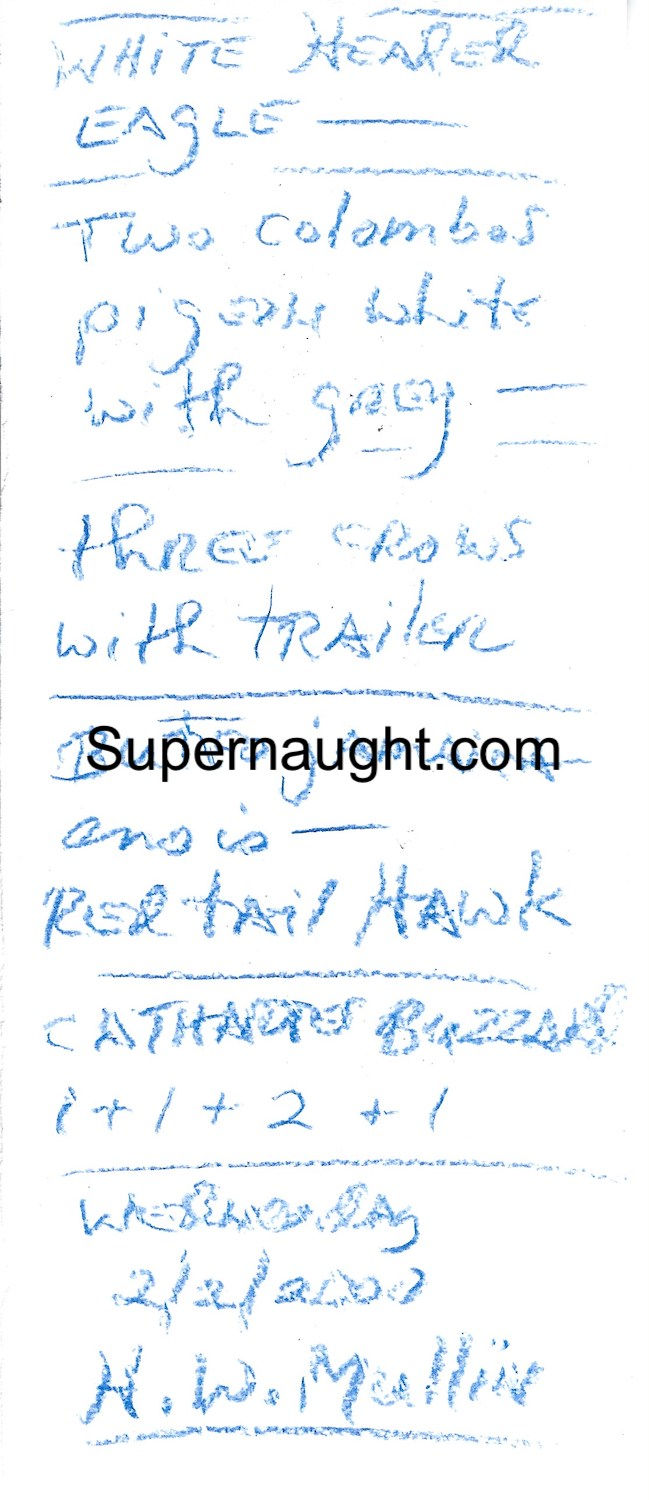 WHITE HEADED
EAGLE —
Two colombos
pigeon white
with grey —
thREE CROWS
with TRAilER
Supernaught.com
—
RED tAil HAWK
CATHARTES BUZZARD
1 + 1 + 2 + 1
WEDNESDAy
2/2/2000
H. W. Mullin